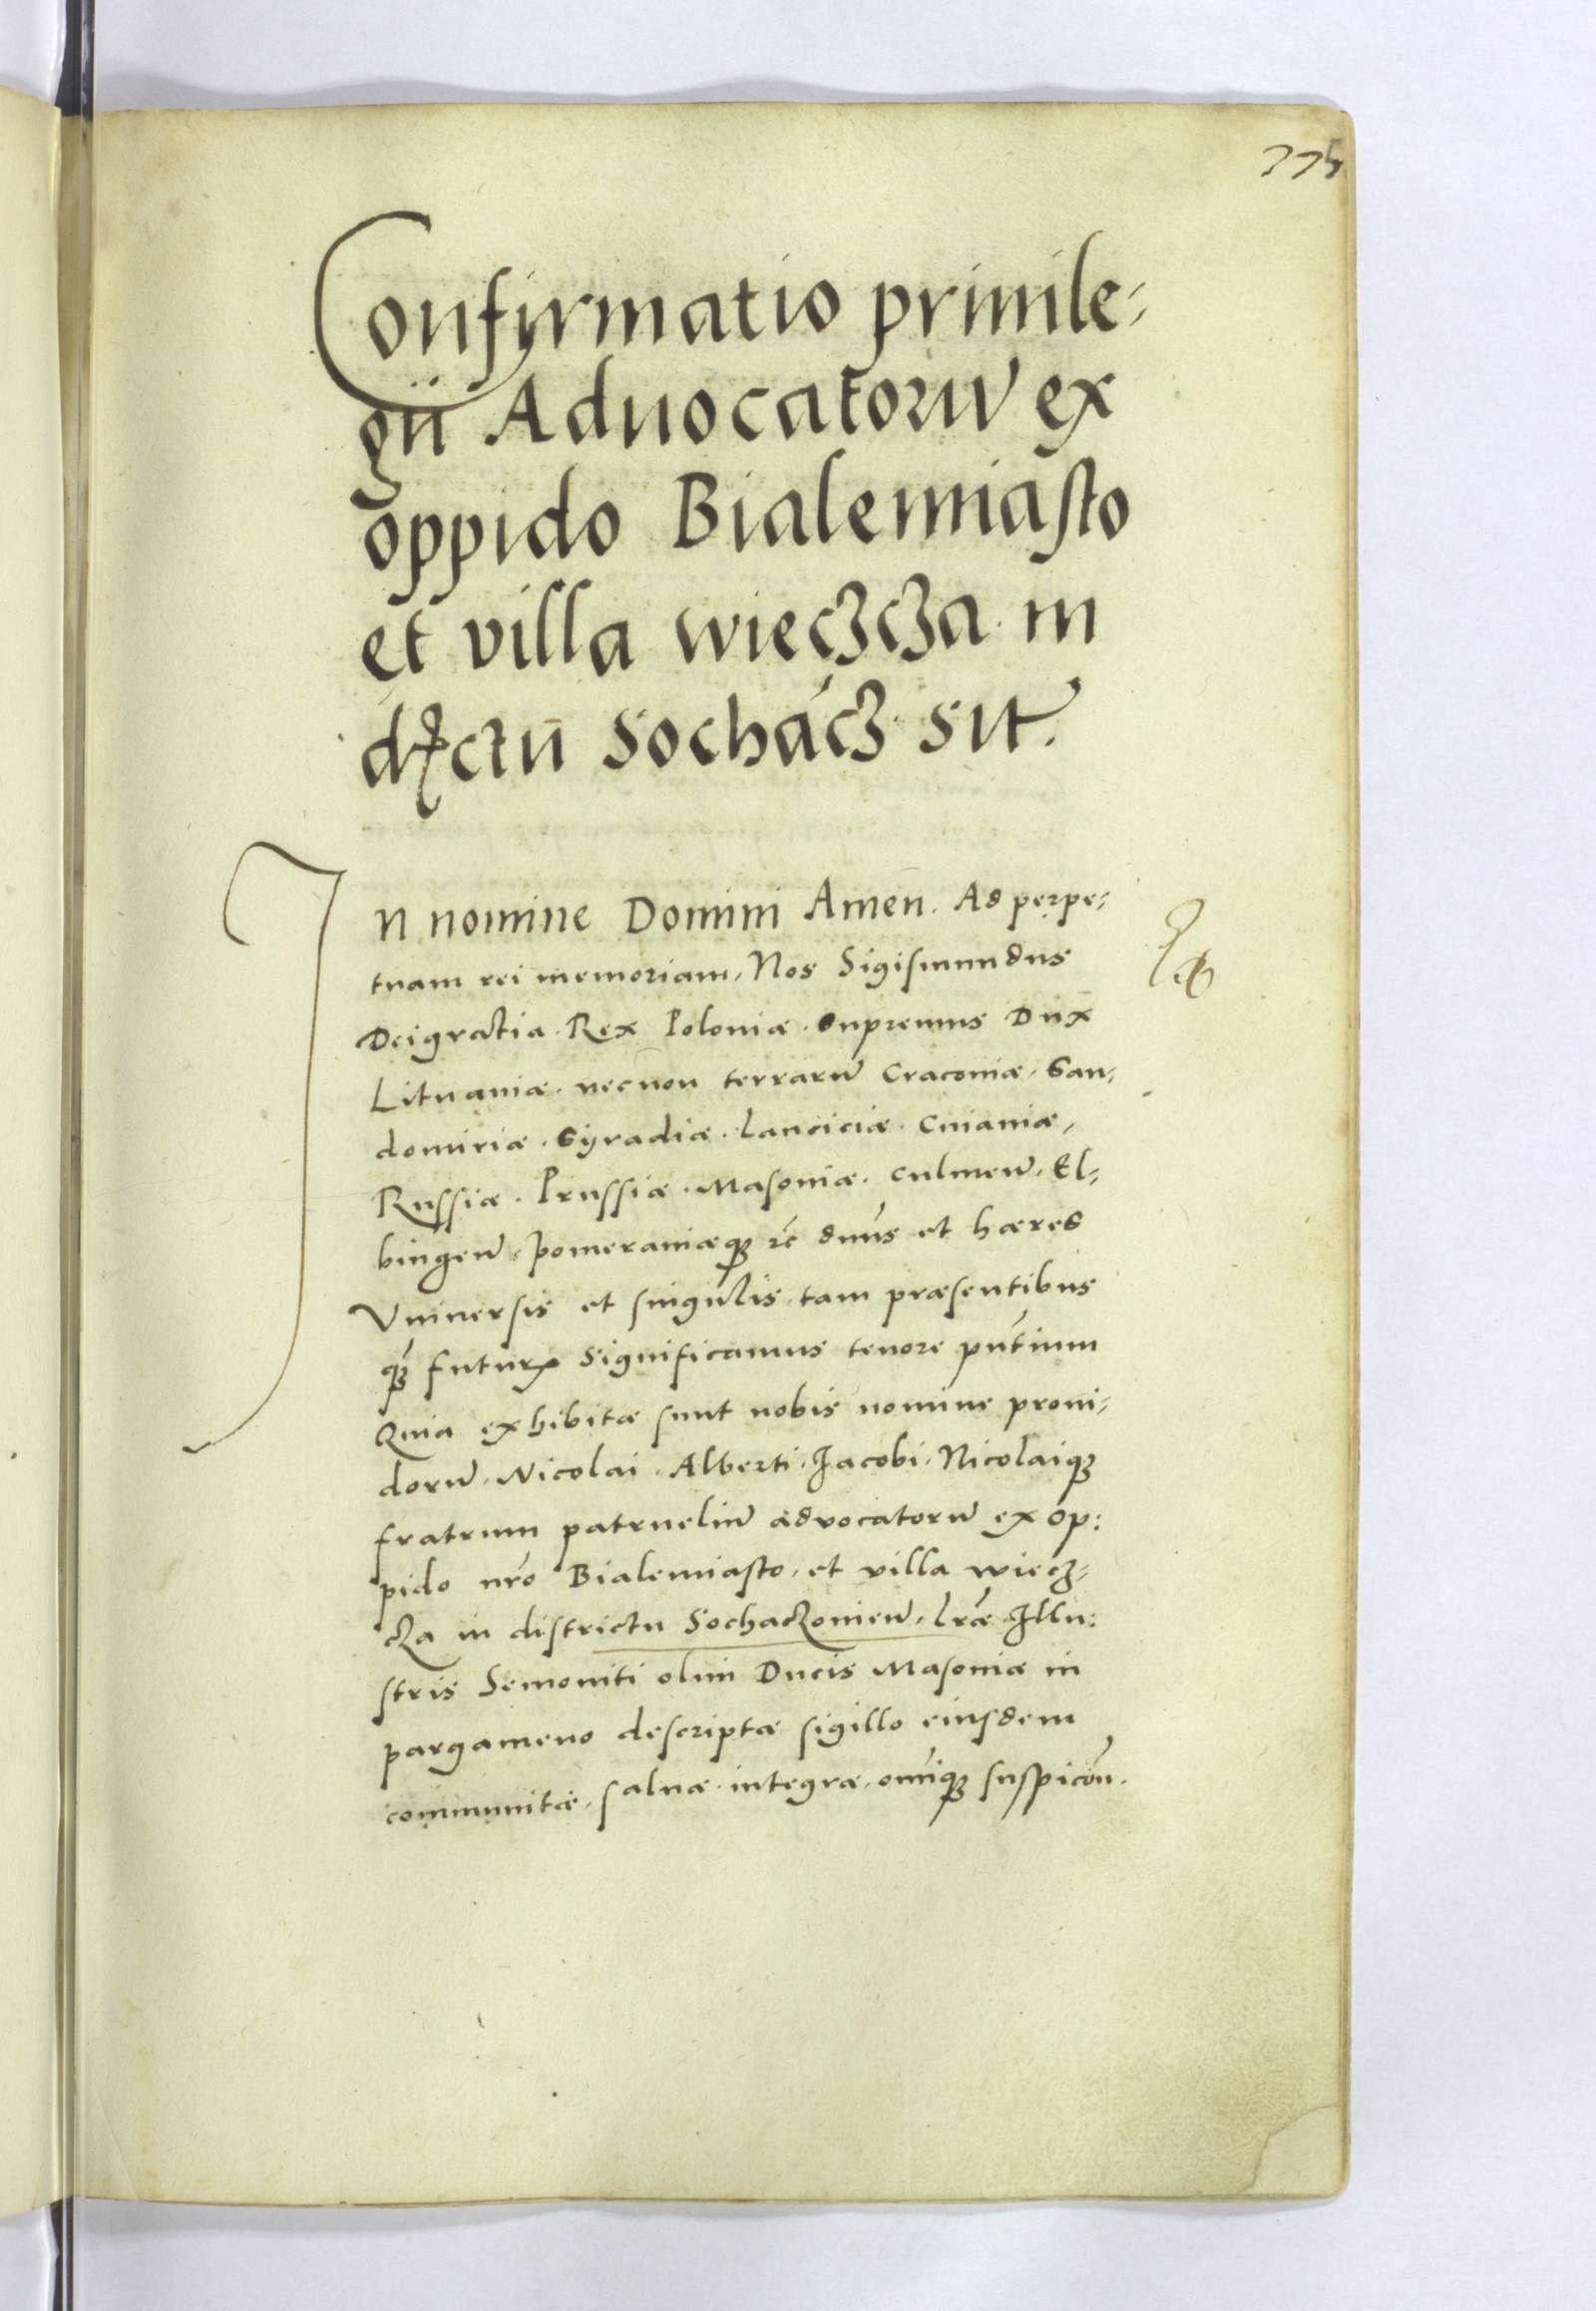 775
Confirmatio privile-
gii Aduocatorũ ex
oppido Bialemiasto
et villa wieczcza in
dictũ Sochacz sit.
In nomine Domini Amen. Ad perpe-
tuam rei memoriam, Nos Sigismundus
Dei gratia Rex Poloniæ. Supremus Dux
Lituaniæ. necnon terrarũ Cracouiæ. San-
domiriæ. Syradiæ. Lanciciæ. Cuiauiæ,
Russiæ. Prussiæ. Masouiæ. Culmeñ. El-
bingeñ. Pomeraniæq; etc dñus et hæres
Vniuersis et singulis tam præsentibus
q̃ futuris significamus tenore pñtium
Quia exhibitæ sunt nobis nomine proui-
dorũ. Nicolai. Alberti. Jacobi. Nicolaiq;
fratrum patrueliũ aduocatorũ ex op:
pido nr̃o Bialemiasto, et villa wiecz-
cza in districtu Sochaczouieñ. lr̃æ Illu:
stris Semouiti olim Ducis Masouiæ in
pargameno descriptæ sigillo eiusdem
communitæ. saluæ. integræ. omñiq; suspicoñ.